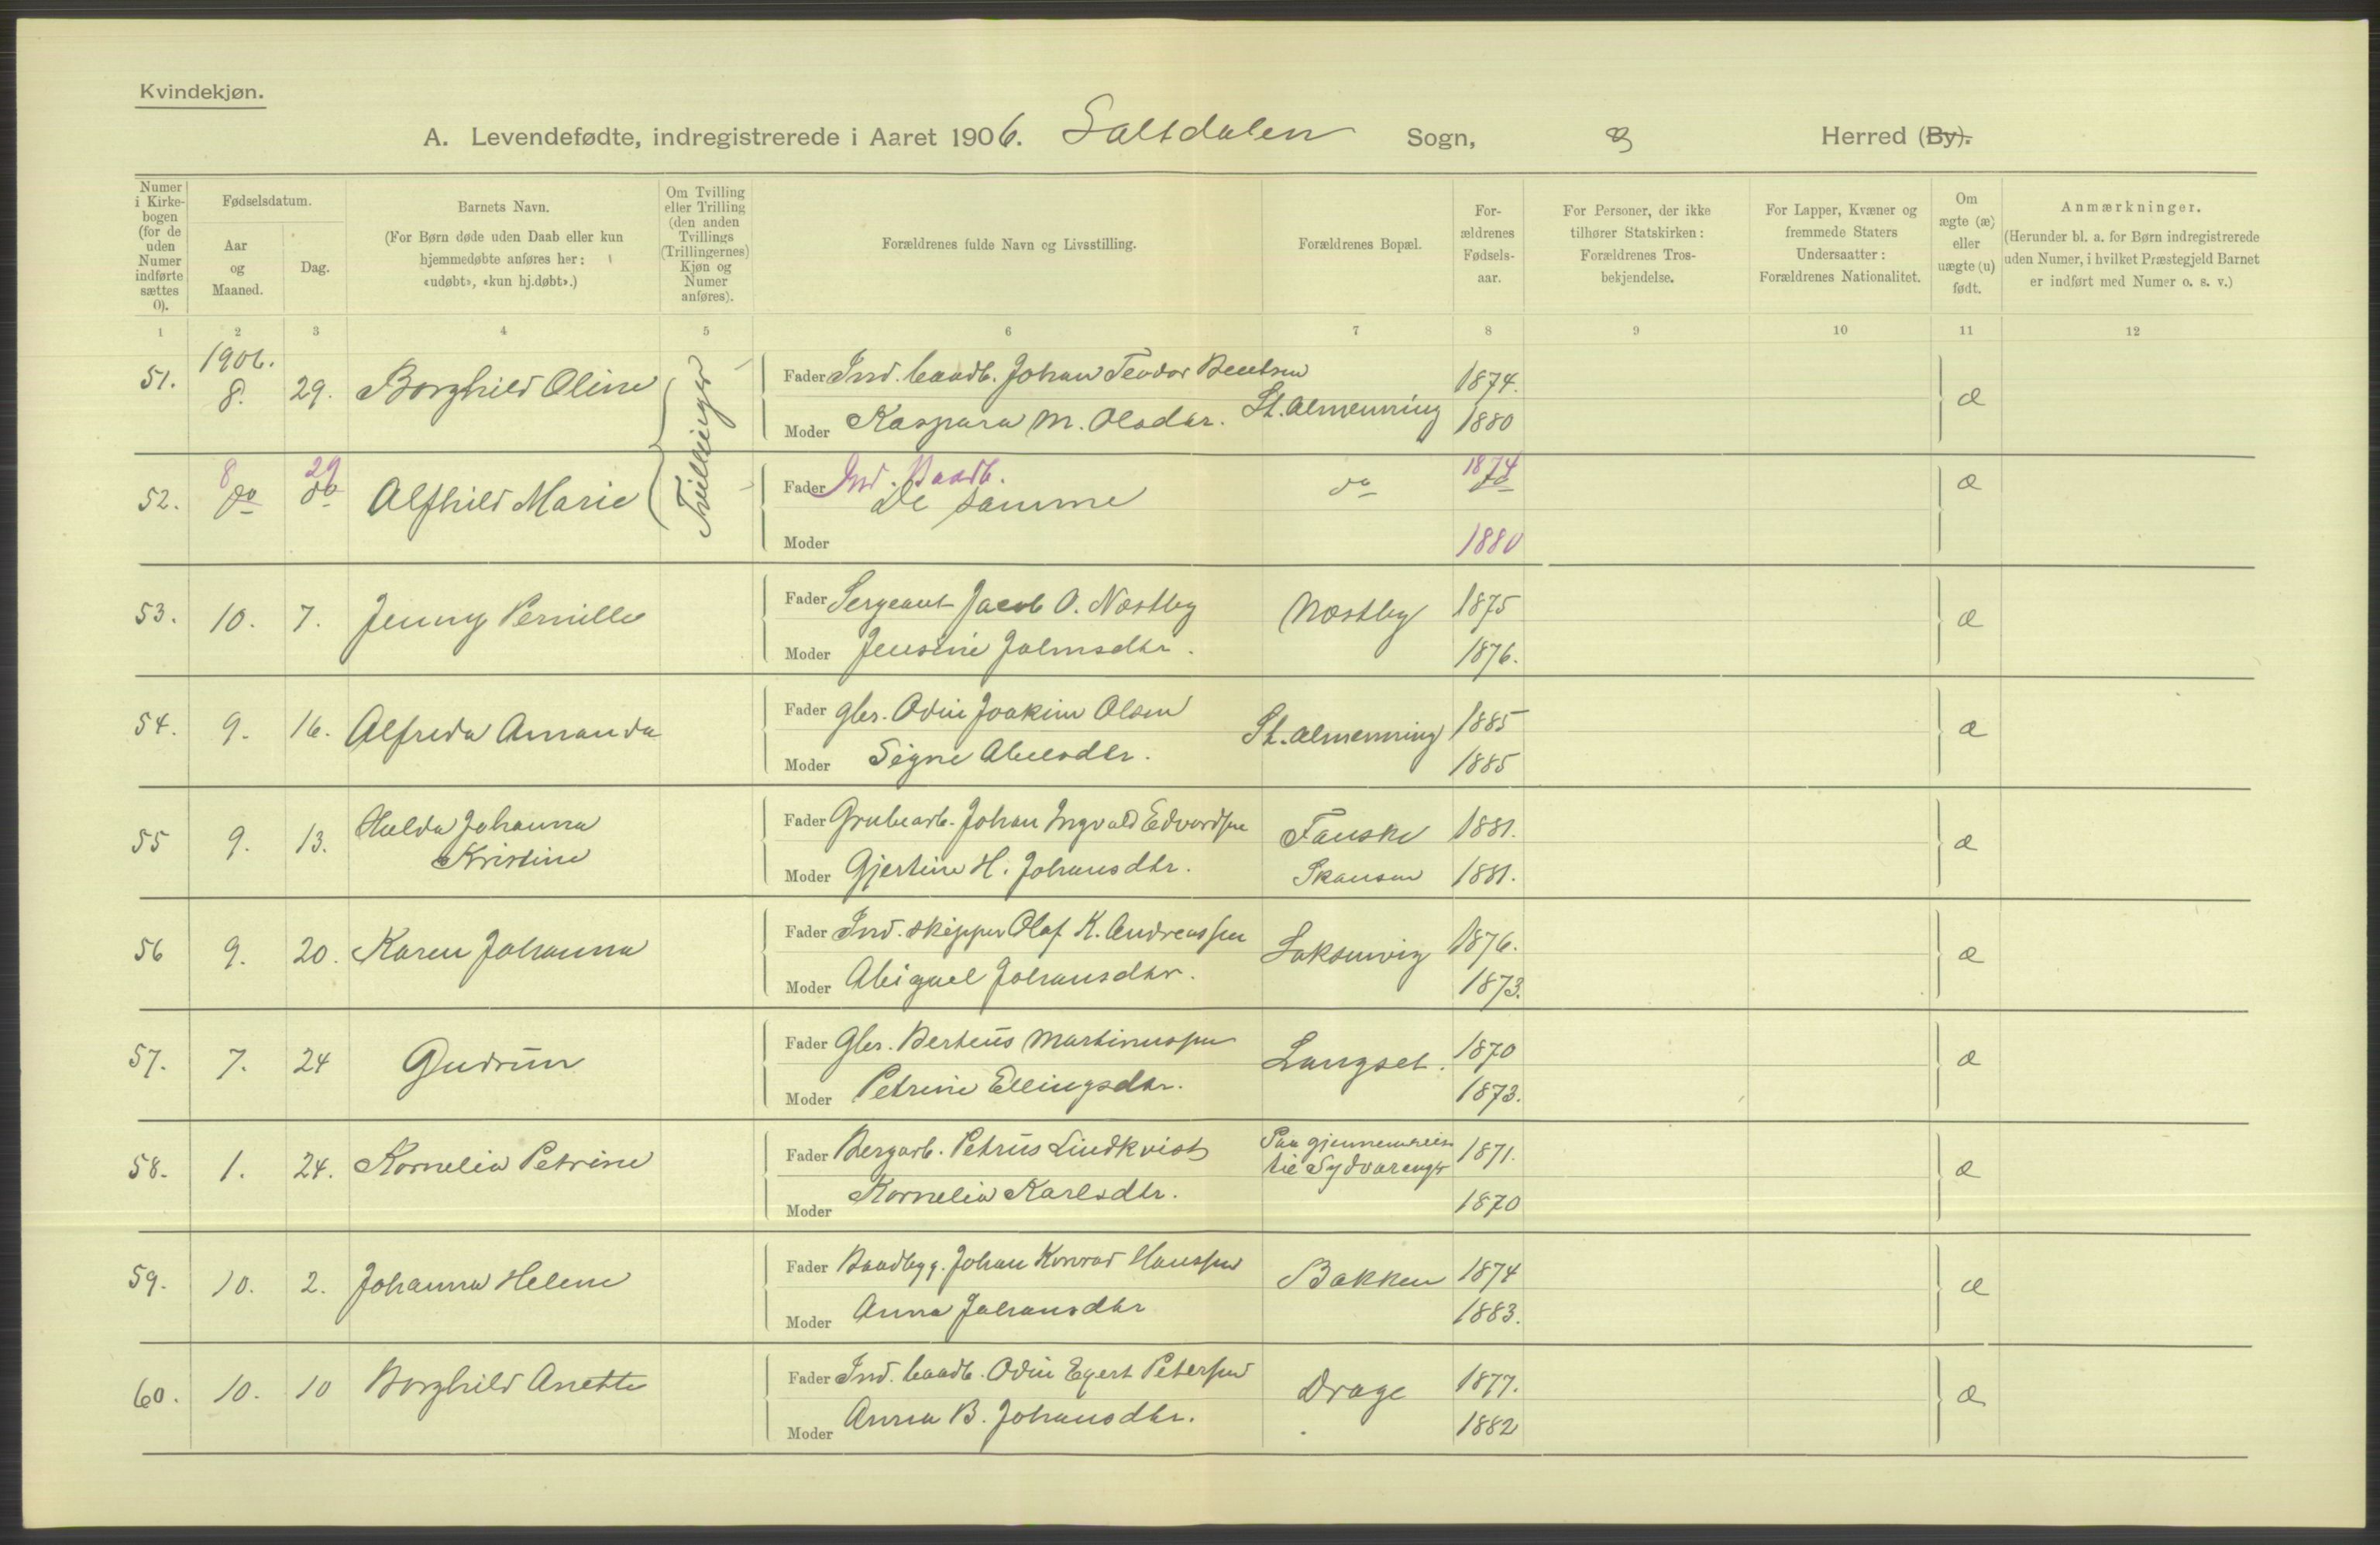 Kvindekjøn.
A. Levendefødte, indregistrerede i Aaret 1906. Saltdalen Sogn, Herred (By).
Numer i Kirke-bogen (for de uden Numer indførte sættes 0).
Fødselsdatum.
Aar og Maaned.
Dag.
Barnets Navn.
(For Børn døde uden Daab eller kun
hjemmedøbte anføres her:
«udøbt», «kun hj.døbt».)
Om Tvilling eller Trilling (den anden Tvillings (Trillingernes) Kjøn og Numer anføres).
Forældrenes fulde Navn og Livsstilling.
Forældrenes Bopæl.
For-ældrenes Fødsels-aar.
For Personer, der ikke
tilhører Statskirken:
Forældrenes Tros-
bekjendelse.
For Lapper, Kvæner og
fremmede Staters
Undersaatter:
Forældrenes Nationalitet.
Om ægte (æ) eller uægte (u) født.
Anmærkninger.
(Herunder bl. a. for Børn indregistrerede
uden Numer, i hvilket Præstegjeld Barnet
er indført med Numer o. s. v.)
1 2 3 4 5 6 7 8 9 10 11 12
51. 1906. 8. 29. Borghild Oline Tvillinger Fader Ind. baadb. Johan Teodor Bentsen 1874. æ
Moder Kaspara M. Olsdtr. St. Almenning 1880
52. 8 do 29 do Alfhild Marie Fader Ind. Baadb. De samme do 1874 do æ
Moder 1880
53. 10. 7. Jenny Pernille Fader Sergeant Jacob O. Næstby Næstby 1875 æ
Moder Jensine Johnsdtr. 1876.
54. 9. 16. Alfreda Amanda Fader gbr. Odin Joakim Olsen St. Almenning 1885 æ
Moder Signe 1885
55 9. 13. Hulda Johanna Kristine Fader Grubearb. Johan Ingvald Edvardsen Fauske 1881. æ
Moder Gjertine H. Johansdtr. Skansen 1881.
56 9. 20. Karen Johanna Fader Ind. skipper Olaf K. Andreassen Saksenvig 1876. æ
Moder Abigael Johansdtr. 1873.
57. 7. 24 Gudrun Fader Gbr. Berteus Martinussen Langset. 1870 æ
Moder Petrine Ellingsdtr. 1873.
58. 1. 24. Kornelia Petrine Fader Bergarb. Petrus Lindkvist Paa gjennemreise til Sydvaranger 1871. æ
Moder Kornelia Karlsdtr. 1870
59. 10. 2. Johanna Helene Fader Baadbygg. Johan Konrad Hanssen Bakken 1874 æ
Moder Anna Johansdtr 1883.
60. 10. 10 Borghild Anette Fader Ind. baadb. Odin Egert Petersen Drage 1877. æ
Moder Anna B. Johansdtr. 1882